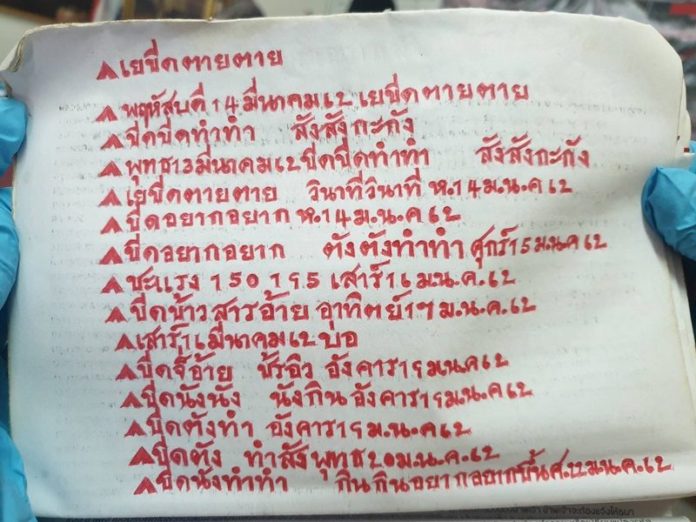 เยขี่ดตายตาย
พฤหัสบดี 14 มีนาคม 62 เยขี่ดตายตาย
ขี่ดขี่ดทำทำ สังสังกะกัง
พุทธ 13 มีนาคม 62 ขี่ดขี่ดทำทำ สังสังกะกัง
เยขี่ดตายตาย วินาทีวินาที ห.14 ม.น.ค 62
ขี่ดอยากอยาก ห.14 ม.น.ค 62
ขี่ดอยากอยาก ตังตังทำทำ ศุกร์ 15 ม.น.ค 62
ชะแรง 150 195 เสาร์ 16 ม.น.ค.62
ขี่ดข้าวสารอ้าย อาทิตย์ 17 ม.น.ค.62
เสาร์ 16 มีนาคม 62 บอ
ขี่ดจี้อ้าย อังคาร 19 ม.น.ค 62
ขี่ดนังนัง นังกิน อังคาร 19 ม.น.ค 62
ขี่ดตังทำ อังคาร 19 ม.น.ค 62
ขี่ดตัง ทำสัง พุทธ 20 ม.น.ค.62
ขี่ดนังทำทำ กินกินอยากอยาก ศ.22 ม.น.ค.62